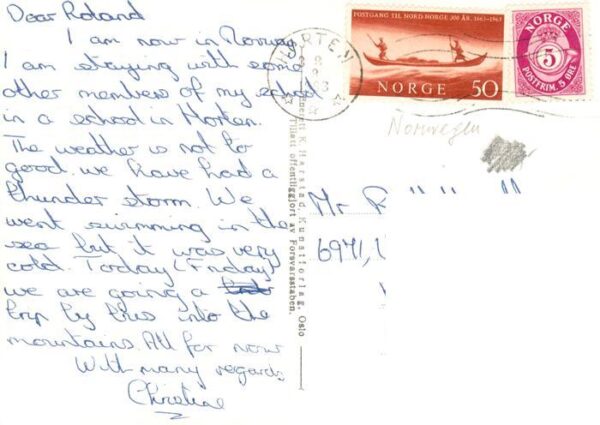 Dear Roland
I am now in Norway
I am staying with some
other members of my school
in a school in Horten.
The weather is not to
good. we have had a
thunder storm. We
went swimming in the
sea but it was very
cold. Today (Friday)
we are going a
trip by bus into the
mountains All for now
With many regards
Christine
Enerett K. Harstad, Kunstforlag, Oslo
Tillatt offentliggjort av Forsvarsstaben.
HORTEN
POSTGANG TIL NORD-NORGE 300 ÅR. 1663-1963
NORGE 50
NORGE
5
POSTFRIM. 5 ØRE
Norwegen
Mr R " " "
6971,